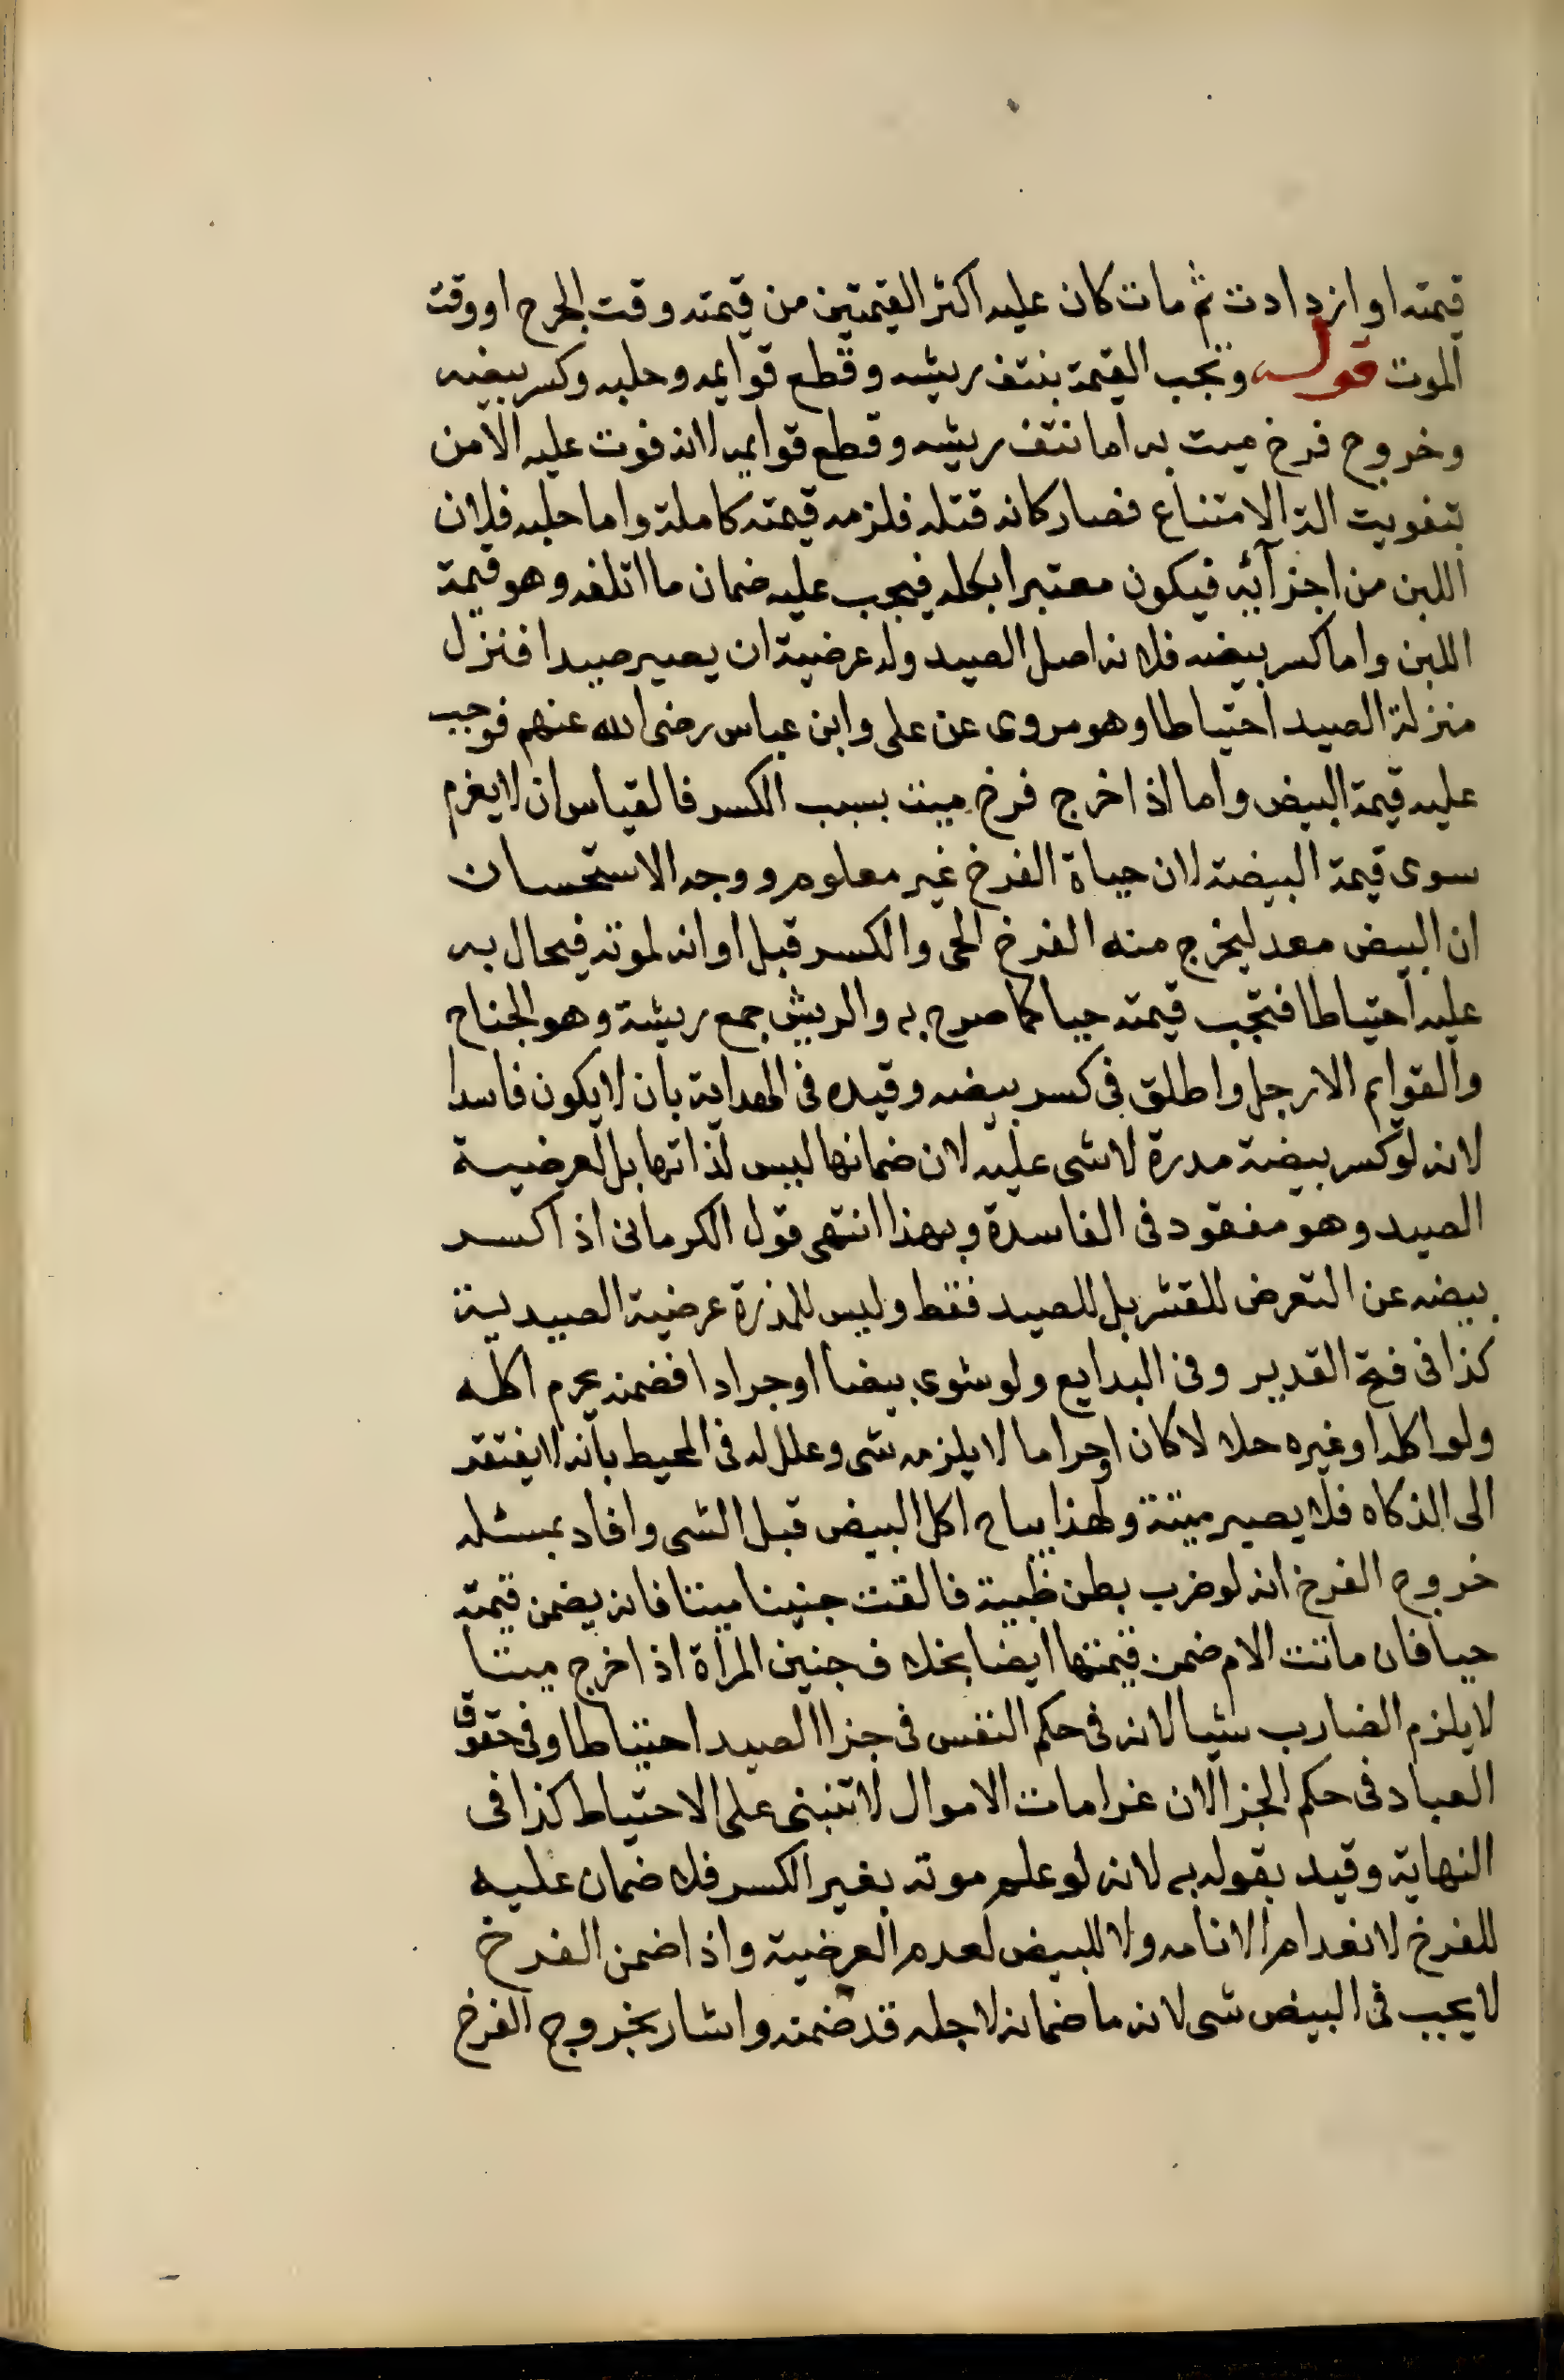 قيمته او ازدادت ثم مات كان عليه اكثر القيمتين من قيمته وقت الجرح او وقت
الموت قوله وتجب القيمة بنتف ريشه وقطع قوايمه وحلبه وكسر بيضه
وخروج فرخ ميت به اما نتف ريشه وقطع قوايمه لانه فوت عليه الامن
بتفويت الة الامتناع فصار كانه قتله فلزمه قيمته كاملة واما حلبه فلان
اللبن من اجزآئه فيكون معتبرا بكله فيجب عليه ضمان ما اتلفه وهو قيمة
اللبن واما كسر بيضه فلانه اصل الصيد وله عرضية ان يصير صيدا فنزل
منزلة الصيد احتياطا وهو مروى عن على وابن عباس رضى الله عنهم فوجب
عليه قيمة البيض واما اذا خرج فرخ ميت بسبب الكسر فالقياس ان لا يغرم
سوى قيمة البيضة لان حياة الفرخ غير معلوم ووجه الاستحسان
ان البيض معد ليخرج منه الفرخ الحى والكسر قبل اوانه لموته فيحال به
عليه احتياطا فتجب قيمته حيا كما صرح به والريش جمع ريشة وهو الجناح
والقوايم الارجل واطلق فى كسر بيضه وقيده فى الهداية بان لا يكون فاسدا
لانه لو كسر بيضة مدرة لا شى عليه لان ضمانها ليس لذاتها بل لعرضية
الصيد وهو مفقود فى الفاسدة وبهذا انتهى قول الكرمانى اذا كسر
بيضه عن التعرض للقشر بل للصيد فقط وليس للمذرة عرضية الصيدية
كذا فى فتح القدير وفى البدايع ولو شوى بيضا او جرادا فضمنه يحرم اكله
ولو اكله او غيره حلالا كان او حراما لا يلزمه شى وعلل له فى المحيط بانه لا يفتقد
الى الذكاه فلا يصير ميتة ولهذا يباح اكل البيض قبل الشى وافاد بمسئله
خروج الفرخ انه لو ضرب بطن ظبية فالقت جنينا ميتا فانه يضمن قيمته
حيا فان ماتت الام ضمن قيمتها ايضا بخلاف جنين المراة اذا خرج ميتا
لا يلزم الضارب شيا لانه فى حكم النفس فى جزا الصيد احتياطا وفى حقوق
العباد فى حكم الجزا لان غرامات الاموال لا تنبنى على الاحتياط كذا فى
النهاية وقيد بقوله به لانه لو علم موته بغير الكسر فلا ضمان عليه
للفرخ لانعدام الاماته ولا للبيض لعدم العرضية واذا ضمن الفرخ
لا يجب فى البيض شى لانه ما ضمانه لاجله قد ضمنه واشار بخروج الفرخ